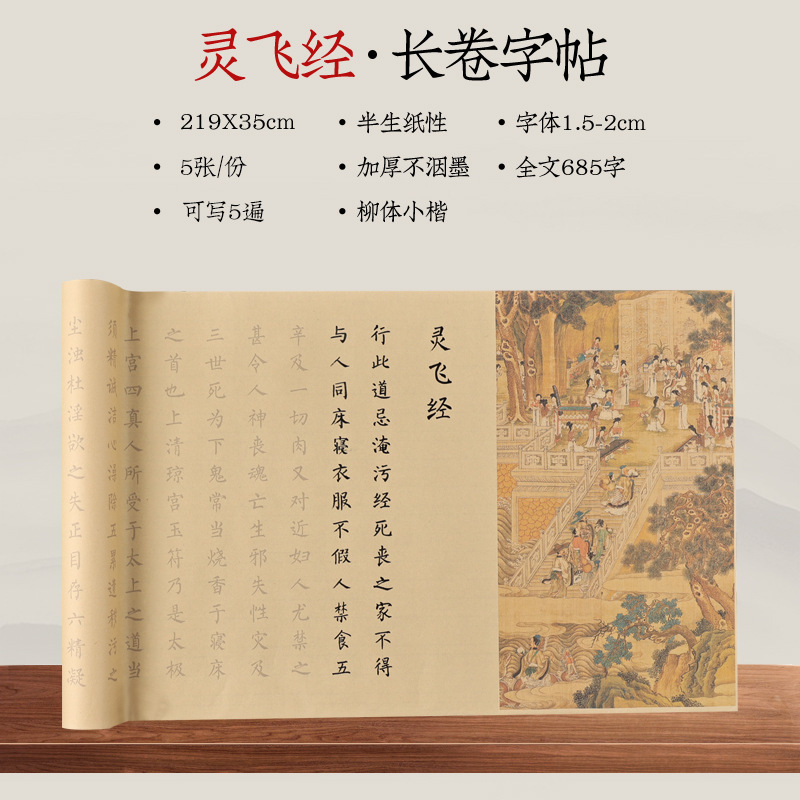 灵飞经·长卷字帖
• 219X35cm
• 半生纸性
• 字体1.5-2cm
• 5张/份
• 加厚不洇墨
• 全文685字
• 可写5遍
• 柳体小楷
灵飞经
行此道忌淹污经死丧之家不得
与人同床寝衣服不假人禁食五
辛及一切肉又对近妇人尤禁之
甚令人神丧魂亡生邪失性灾及
三世死为下鬼常当烧香于寝床
之首也上清琼宫玉符乃是太极
上宫四真人所受于太上之道当
须精诚洁心澡除五累遗秽污之
尘浊杜淫欲之失正目存六精凝